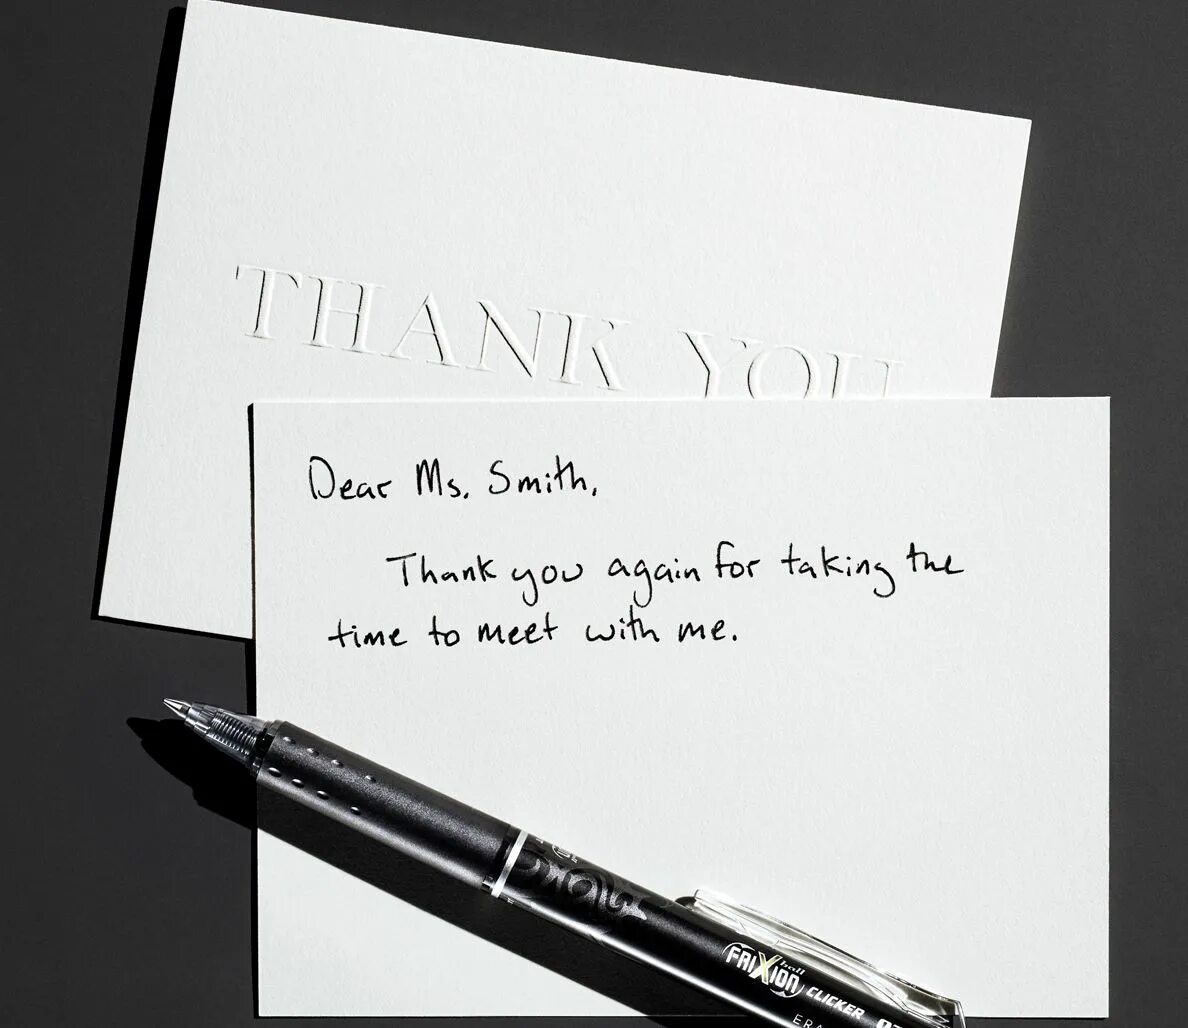 THANK YOU
Dear Ms. Smith,
Thank you again for taking the
time to meet with me.
FRIXION ball CLICKER